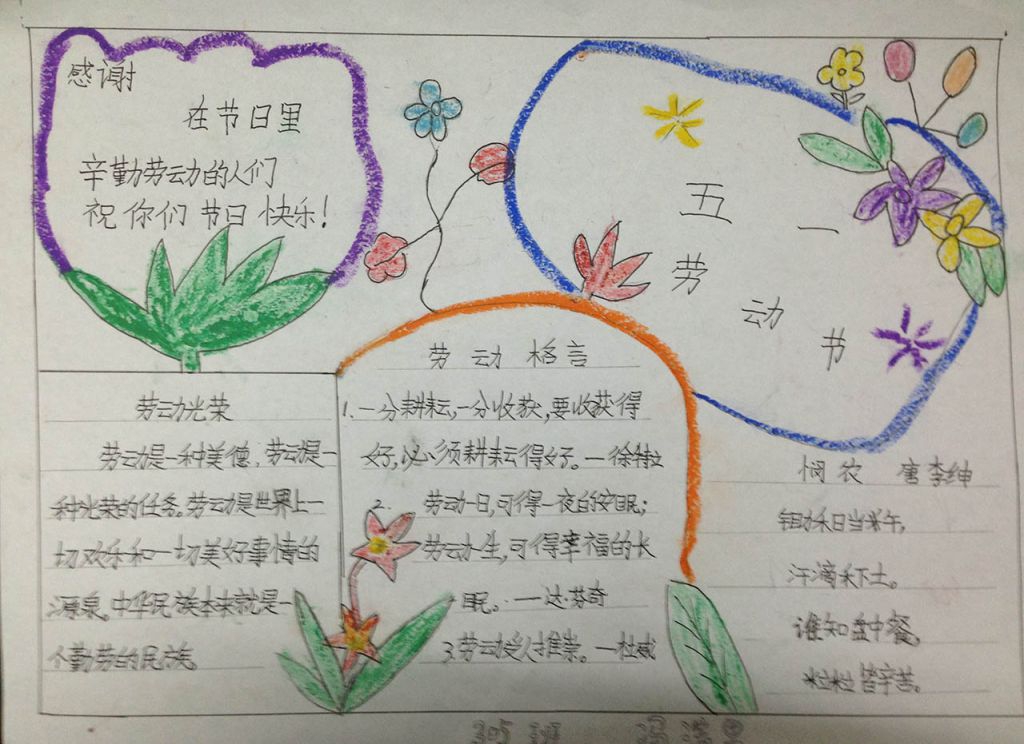 感谢
在节日里
辛勤劳动的人们
祝你们节日快乐!
五一
劳动节
劳动光荣
劳动是一种美德,劳动是一
种光荣的任务。劳动是世界上一
切欢乐和一切美好事情的
源泉。中华民族本来就是一
个勤劳的民族。
劳动格言
1.一分耕耘,一分收获,要收获得
好,必须耕耘得好。一徐特拉
2. 劳动一日,可得一夜的安眠;
劳动一生,可得幸福的长
眠。一达·芬奇
3.劳动受人推崇。一杜威
悯农 唐李绅
锄禾日当午,
汗滴禾下土。
谁知盘中餐,
粒粒皆辛苦。
班